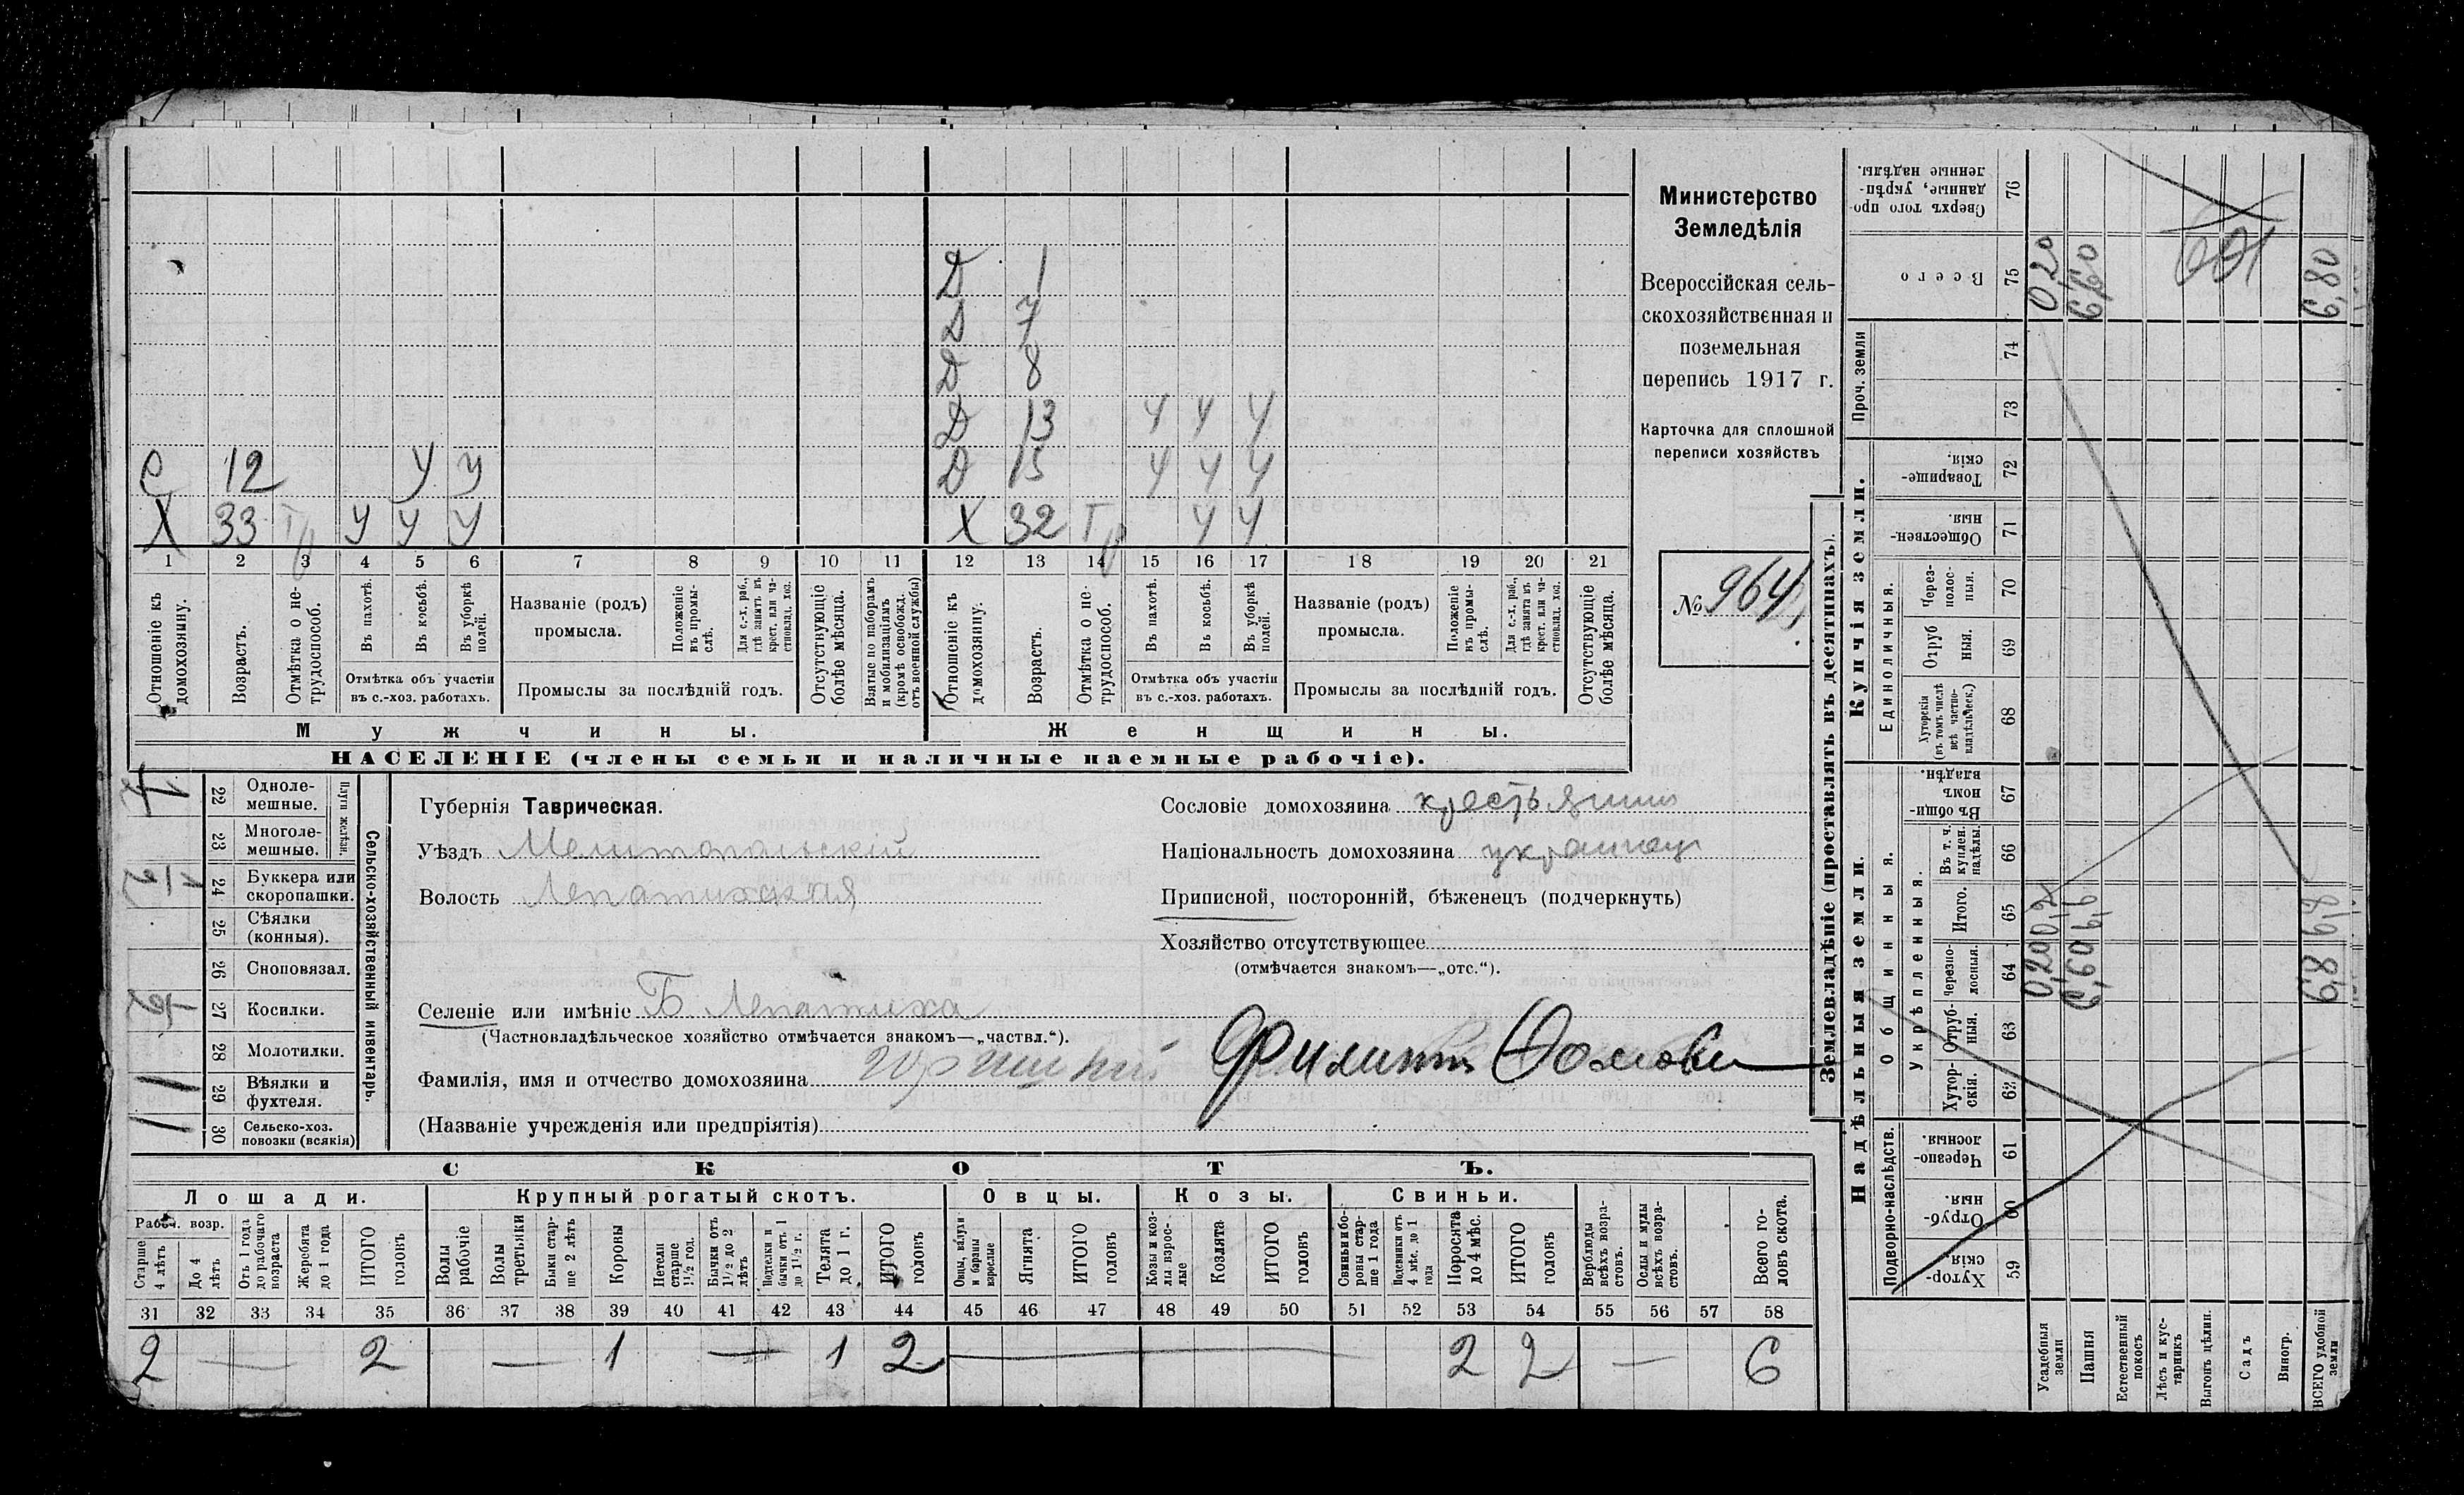 Д 1
Д 7
Д 8
Д 13 У У У
С 12 У У Д 15 У У У
Х 33 Гр У У У Х 32 Гр У У
1 2 3 4 5 6 7 8 9 10 11 12 13 14 15 16 17 18 19 20 21
Отношеніе къ домохозяину.
Возрастъ.
Отмѣтка о нетрудоспособ.
Въ пахотѣ.
Въ косьбѣ.
Въ уборкѣ полей.
Отмѣтка объ участіи
въ с.-хоз. работахъ.
Названіе (родъ)
промысла.
Положеніе въ промыслѣ.
Для с.-х. раб., гдѣ занятъ въ крест. или частновлад. хоз.
Промыслы за послѣдній годъ.
Отсутствующіе болѣе мѣсяца.
Взятые по наборамъ и мобилизаціямъ (кромѣ освобожд. отъ военной службы)
Отношеніе къ домохозяину.
Возрастъ.
Отмѣтка о нетрудоспособ.
Въ пахотѣ.
Въ косьбѣ.
Въ уборкѣ полей.
Отмѣтка объ участіи
въ с.-хоз. работахъ.
Названіе (родъ)
промысла.
Положеніе въ промыслѣ.
Для с.-х. раб., гдѣ занята въ крест. или частновлад. хоз.
Промыслы за послѣдній годъ.
Отсутствующіе болѣе мѣсяца.
Мужчины. Женщины.
НАСЕЛЕНІЕ (члены семьи и наличные наемные рабочіе).
Министерство
Земледѣлія
Всероссійская сель-
скохозяйственная и
поземельная
перепись 1917 г.
Карточка для сплошной
переписи хозяйствъ
№ 964
Сельско-хозяйственный инвентарь.
Плуги желѣзн.
22 Одноле-
мешные.
23 Многоле-
мешные.
24 Буккера или
скоропашки.
25 Сѣялки
(конныя).
26 Сноповязал.
27 Косилки.
28 Молотилки.
29 Вѣялки и
фухтеля.
30 Сельско-хоз.
повозки (всякія)
Губернія Таврическая.
Уѣздъ Мелитопольскій
Волость Лепатихская
Селеніе или имѣніе Б Лепатиха
(Частновладѣльческое хозяйство отмѣчается знакомъ—„частвл.“).
Фамилія, имя и отчество домохозяина Филиппъ
(Названіе учрежденія или предпріятія)
Сословіе домохозяина крестьянинъ
Національность домохозяина украинецъ
Приписной, посторонній, бѣженецъ (подчеркнуть)
Хозяйство отсутствующее
(отмѣчается знакомъ—„отс.“).
СКОТЪ.
Лошади. Крупный рогатый скотъ. Овцы. Козы. Свиньи.
Рабоч. возр.
Старше 4 лѣтъ
До 4 лѣтъ
Отъ 1 года до рабочаго возраста
Жеребята до 1 года
ИТОГО головъ
Волы рабочіе
Волы третьяки
Быки старше 2 лѣтъ
Коровы
Нетели старше 1½ год.
Бычки отъ 1½ до 2 лѣтъ
Подтелки и бычки отъ 1 до 1½ г.
Телята до 1 г.
ИТОГО головъ
Овцы, валухи и бараны взрослые
Ягнята
ИТОГО головъ
Козы и козлы взрослые
Козлята
ИТОГО головъ
Свиньи и боровы старше 1 года
Подсвинки отъ 4 мѣс. до 1 года
Поросята до 4 мѣс.
ИТОГО головъ
Верблюды всѣхъ возрастовъ.
Ослы и мулы всѣхъ возрастовъ.
Всего головъ скота.
31 32 33 34 35 36 37 38 39 40 41 42 43 44 45 46 47 48 49 50 51 52 53 54 55 56 57 58
2 — 2 — 1 — 1 2 — 2 2 — 6
Землевладѣніе (проставлять въ десятинахъ).
Надѣльныя земли. Купчія земли. Проч. земли
Подворно-наслѣдств. Общинныя. Укрѣпленныя. Единоличныя.
Хутор-
скія. 59
Отруб-
ныя. 60
Черезпо-
лосныя. 61
Хутор-
скія. 62
Отруб-
ныя. 63
Черезпо-
лосныя. 64
Итого. 65
Въ т. ч. куплен. надѣлы. 66
Въ общин-
номъ
владѣн. 67
Хуторскія (въ томъ числѣ всѣ частно-владѣльческ.) 68
Отруб
ныя. 69
Через-
полос-
ныя. 70
Обществен-
ныя. 71
Товарище-
скія. 72
73
74
Всего 75
Сверхъ того про-
данные, укрѣп-
ленные надѣлы. 76
Усадебныя земли 0,20 0,2 0,20
Пашня 6,60 6,6 6,60
Естественный покосъ
Лѣсъ и кустарникъ
Выгонъ цѣлин.
Садъ
Виногр.
ВСЕГО удобной земли 6,8 6,8 6,80